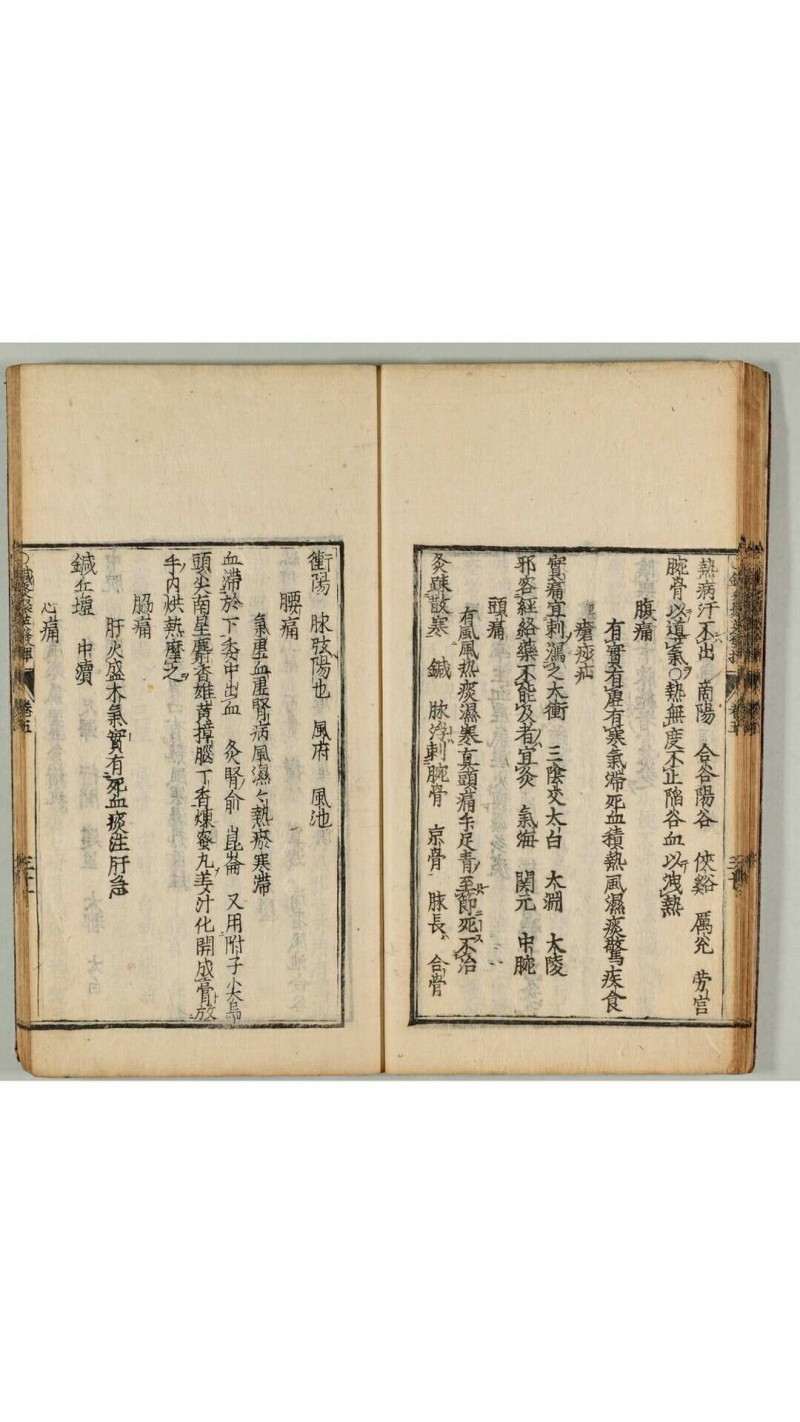 熱病汗不出 商陽 合谷陽谷 俠谿 厲兊 劳宫
腕骨以導氣〇熱無度不止陷谷血以洩熱
腹痛
有實有虚有寒氣滞死血積熱風濕痰驚
瘡痧疝
實痛宜刺瀉之太衝 三陰交太白 太渊 大陵
邪客經絡藥不能及者宜灸 氣海 関元 中腕
頭痛
有風風热痰濕寒真頭痛手足青至節死不治
灸疎散寒 鍼 脉浮刺腕骨 京骨 脉長 合骨
衝陽 脉弦陽也 風府 風池
腰痛
氣虚血虚腎病風濕々熱瘀寒滞
血滞於下委中出血 灸腎俞 崑崙 又用附子尖烏
頭尖南星麝香雄黄樟腦丁香煉蜜丸姜汁化開成膏放
手内烘熱摩之
脇痛
肝火盛木氣實有死血痰注肝急
鍼丘墟 中瀆
心痛
卷五